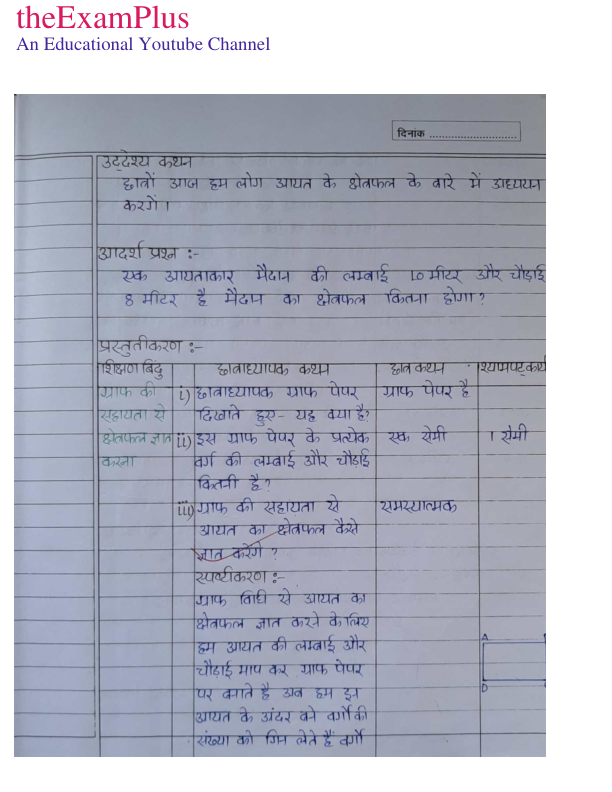 theExamPlus
An Educational Youtube Channel
दिनांक ............................
उद्देश्य कथन
छात्रों आज हम लोग आयत के क्षेत्रफल के बारे में अध्ययन
करगें।
आदर्श प्रश्न :-
एक आयताकार मैदान की लम्बाई 10 मीटर और चौड़ाई
8 मीटर है मैदान का क्षेत्रफल कितना होगा?
प्रस्तुतीकरण :-
शिक्षण बिंदु छात्राध्यापक कथन छात्र कथन श्यामपट्ट कार्य
ग्राफ की i) छात्राध्यापक ग्राफ पेपर ग्राफ पेपर है
सहायता से दिखाते हुए- यह क्या है?
क्षेत्रफल ज्ञात ii) इस ग्राफ पेपर के प्रत्येक एक सेमी 1 सेमी
करना वर्ग की लम्बाई और चौड़ाई
कितनी है?
iii) ग्राफ की सहायता से समस्यात्मक
आयत का क्षेत्रफल कैसे
ज्ञात करेंगे ?
स्पष्टीकरण :-
ग्राफ विधि से आयत का
क्षेत्रफल ज्ञात करने के लिए
हम आयत की लम्बाई और
A
चौड़ाई माप कर ग्राफ पेपर
पर बनाते है अब हम इन
D
आयत के अंदर बने वर्गों की
संख्या को गिन लेते हैं वर्गों